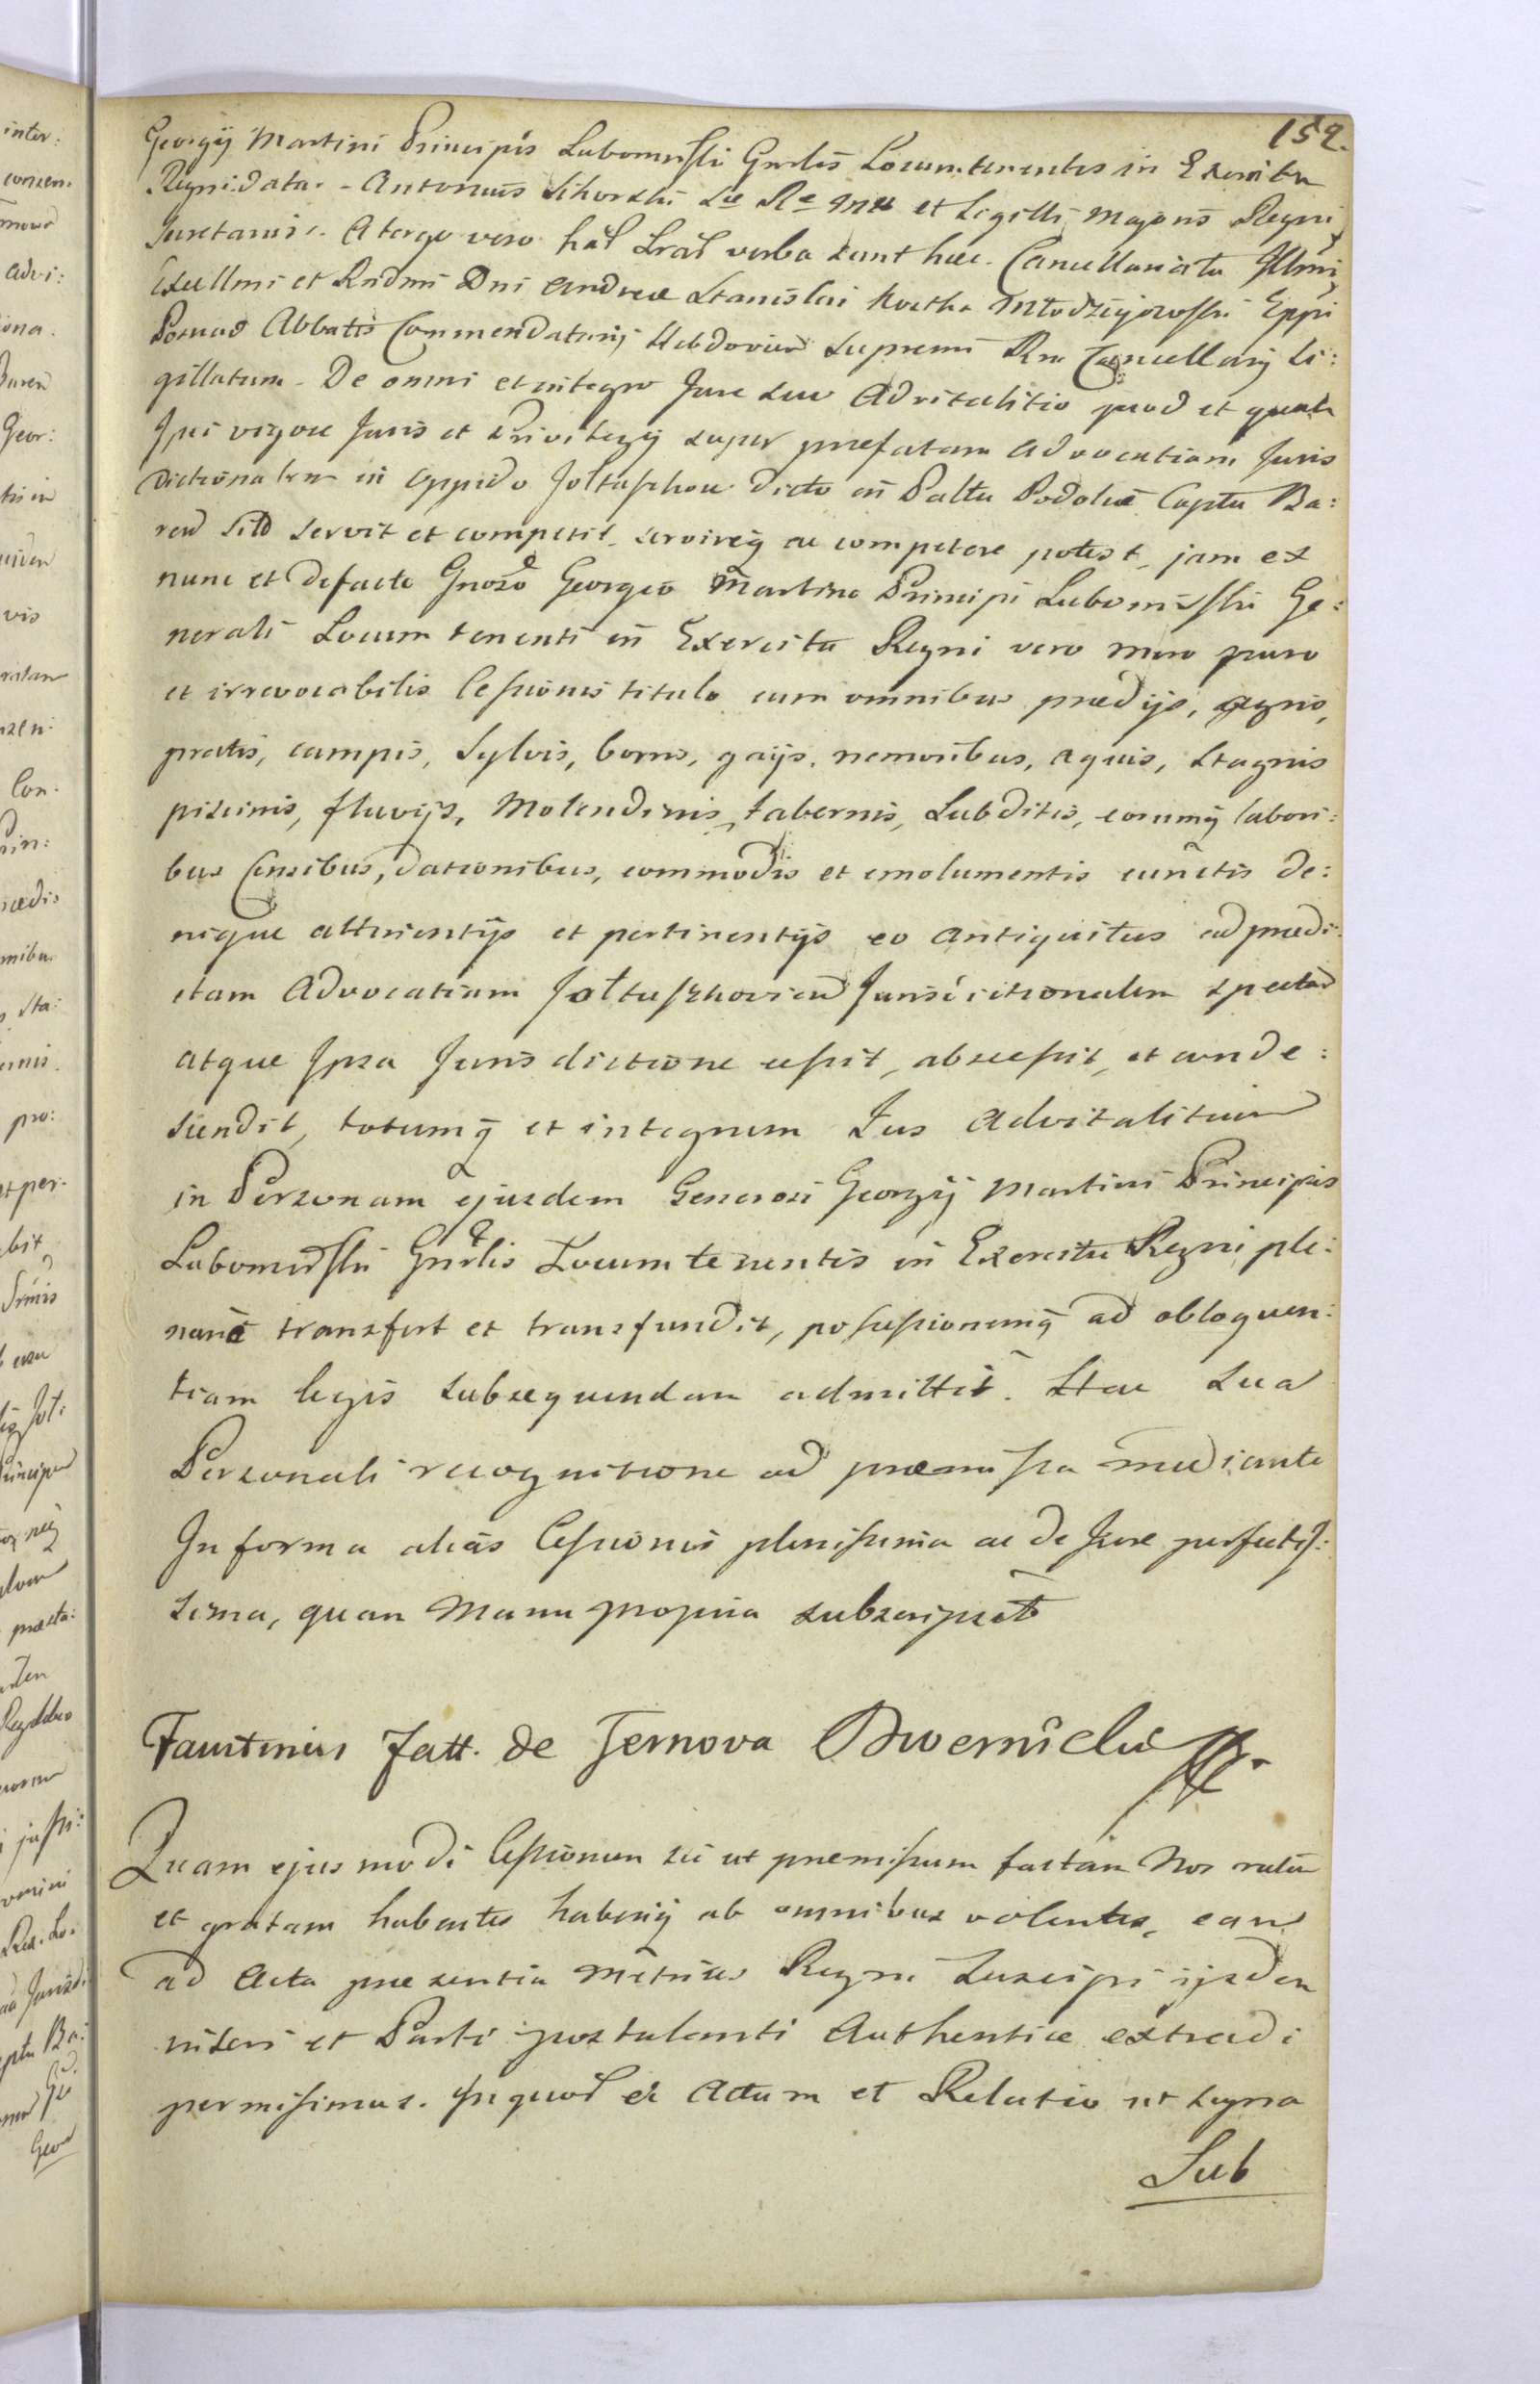 152.
Georgij Martini Principis Lubomirski Gnrlis Locumtenentis in Exercitu
Regni data. - Antonius Sikorski Sæ Ræ Mtt et Sigilli Majoris Regni
Srctarius. A tergo vero hār Lrār verba sunt hæc. Cancellariatu Illmi,
Excllmi et Rndmi Dni Andreæ Stanislai Kostka Młodziejowski Eppi
Posnad Abbatis Commendatarij Hebdoviens Supremi Rni Cancellarij Si:
gillatum. De omni et integro Jure suo Advitalitio quod et quale
Ipsi vigore Juris et Privilegij super præfatam Advocatiam Juris
dictionalem in Oppido Jołtuszkow dicto in Paltu Podoliæ Captu Ba:
ren Sitō servit et competit servireq ac competere potest, jam ex
nunc et defacto Gnoso Georgio Martino Principi Lubomirski Ge:
nerali Locum tenenti in Exercitu Regni vero mero puro
et irrevocabilis Cessionis titulo cum omnibus prædijs, agris,
pratis, campis, Sylvis, borris, gaijs, nemoribus, aquis, Stagnis
piscinis, fluvijs, Molendinis, tabernis, Subditis, eorumq labori:
bus Censibus, dationibus, commodis et emolumentis cunctis de:
nique attinentijs et pertinentijs eo antiquitus ad prædi:
ctam Advocatiam Jołtuszkovien Jurisdictionalem spectan
atque Ipsa Jurisdictione cessit, abscessit, et conde:
scendit, totumq et integrum Jus Advitalitium
in Personam ejusdem Generosi Georgij Martini Principis
Lubomirski Gnrlis Locumtenentis in Exercitu Regni ple:
nariè transfert et transfundit, possessionemq ad obloquen:
tiam legis subsequendam admittit. Hac Sua
Personali recognitione ad præmissa mediante
In forma alias Cessionis plenissima ac de Jure perfectis:
sima, quam Manu propria subscripsit
Faustinus Jatt. de Ternova Dwernicki
Quam ejusmodi Cessionem sic ut præmissum factam Nos ratam
et gratam habentes haberiq ab omnibus volentes, eam
ad Acta præsentia Metrices Regni Suscipi ijsdem
inseri et Parti postulanti Authentice extradi
permissimus. In quor Actum et Relatio ut supra
Sub
inter:
concen.
advi:
iona.
Geor:
vis
Con.
mibus
sta:
pro:
et per.
Geor